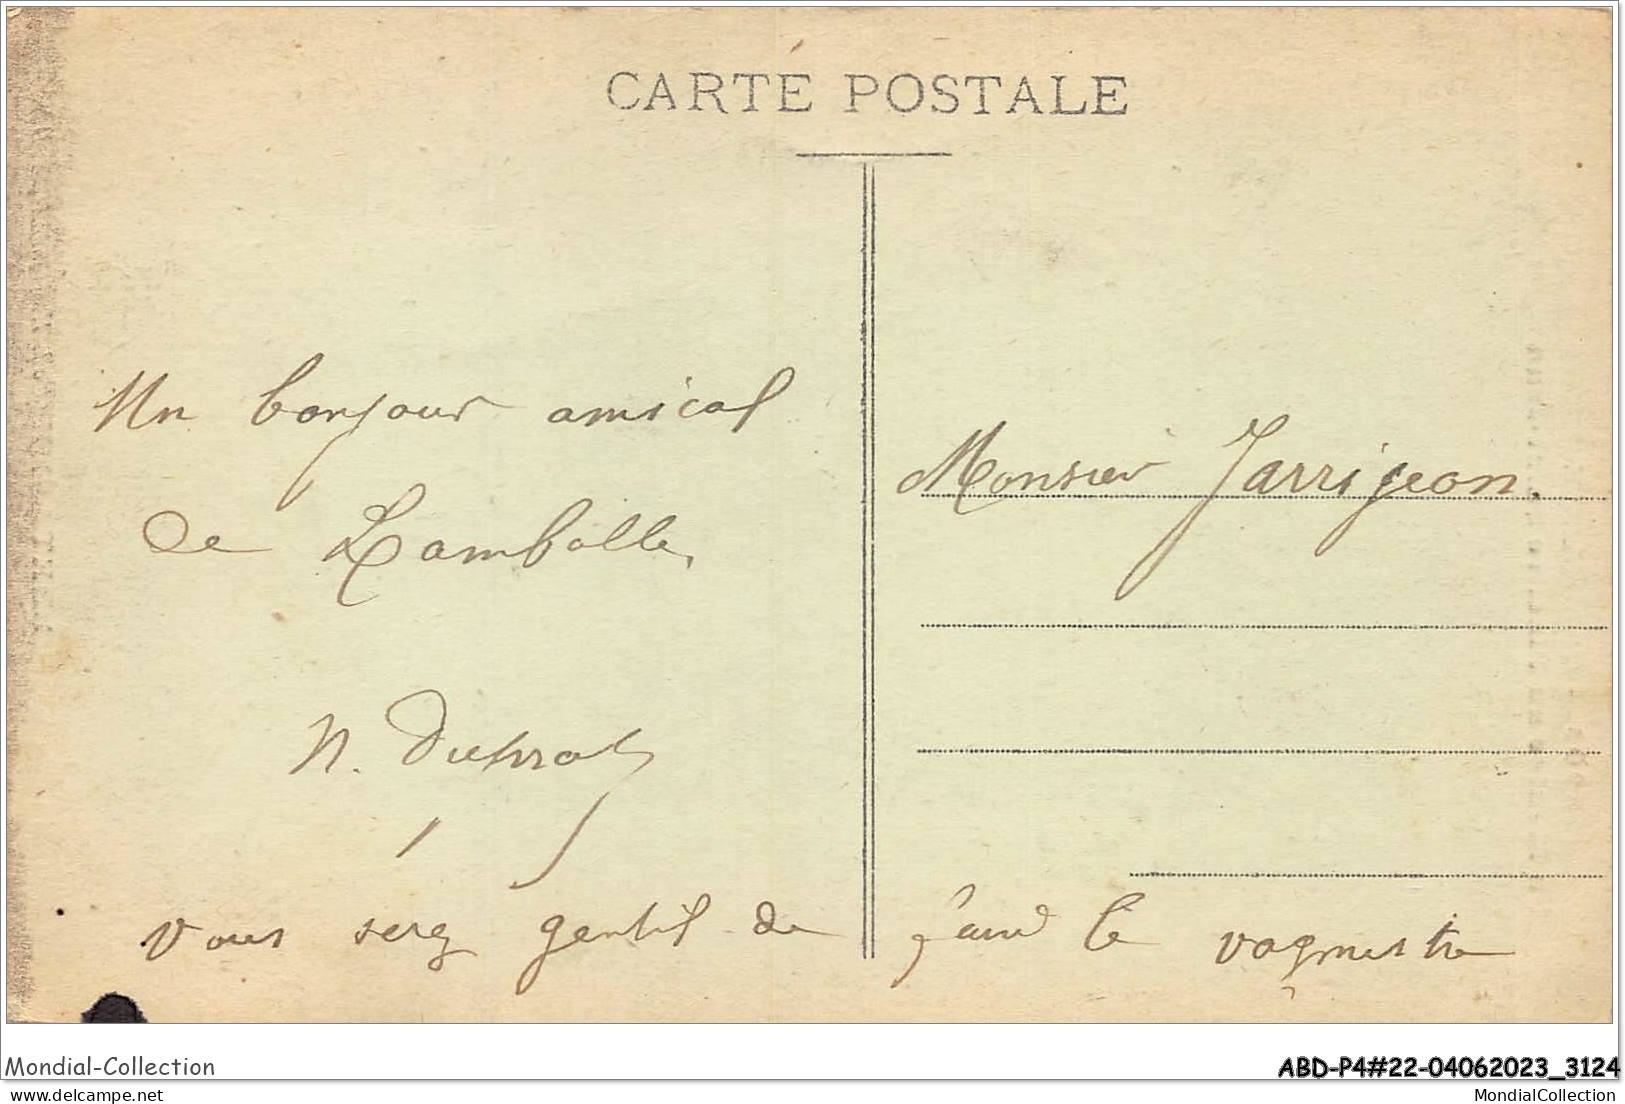 CARTE POSTALE
Un bonjour amical
de Lamballe,
N. Duprat
Monsieur Jarrigeon.
Vous serez gentil de faire le vaguemestre
Mondial-Collection
ABD-P4#22-04062023_3124
delcampe.net
MondialCollection